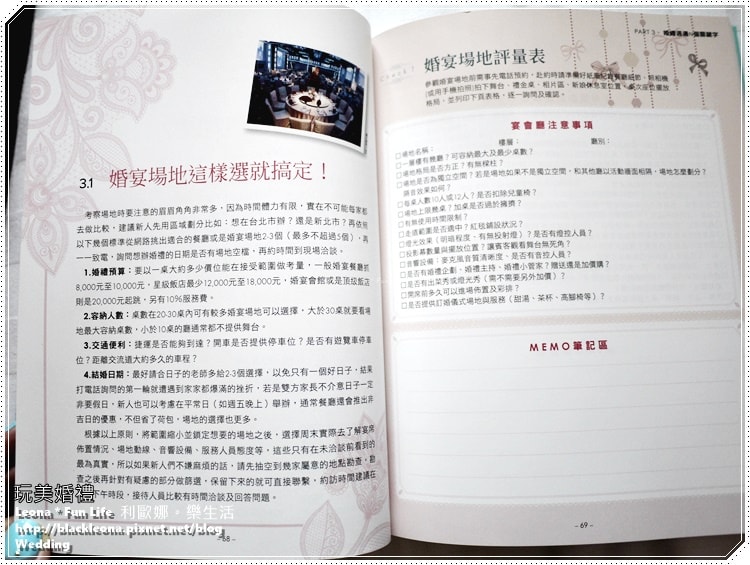 3.1 婚宴場地這樣選就搞定！
考察場地時要注意的眉眉角角非常多，因為時間體力有限，實在不可能每家都
去做比較，建議新人先用區域劃分比如：想在台北市辦？還是新北市？再依照
以下幾個標準從網路挑出適合的餐廳或是婚宴場地2-3個（最多不超過5個），再
一一致電，詢問想辦婚禮的日期是否有場地空檔，再約時間到現場洽談。
1.婚禮預算：要以一桌大約多少價位能在接受範圍做考量，一般婚宴餐廳約
8,000元至10,000元，星級飯店最少12,000元至18,000元，婚宴會館或是頂級飯店
則是20,000元起跳，另有10%服務費。
2.容納人數：桌數在20-30桌內可有較多婚宴場地可以選擇，大於30桌就要看場
地最大容納桌數，小於10桌的廳通常都不提供舞台。
3.交通便利：捷運是否能夠到達？開車是否提供停車位？是否有遊覽車停車
位？距離交流道大約多久的車程？
4.結婚日期：最好請合日子的老師多給2-3個選擇，以免只有一個好日子，結果
打電話詢問的第一輪就遭遇到家家都爆滿的挫折，若是雙方家長不介意日子一定
非要假日，新人也可以考慮在平常日（如週五晚上）舉辦，通常餐廳還會推出非
吉日的優惠，不但省了荷包，場地的選擇也更多。
根據以上原則，將範圍縮小並鎖定想要的場地之後，選擇周末實際去了解宴席
佈置情況、場地動線、音響設備、服務人員態度等，這些只有在未洽談前看到的
最為真實，所以如果新人們不嫌麻煩的話，請先抽空到幾家屬意的地點勘查，勘
查之後再針對有疑慮的部分做篩選，保留下來的就可直接聯繫，約訪時間建議在
下午時段，接待人員比較有時間洽談及回答問題。
- 68 -
PART 3
婚宴場地評量表
參觀婚宴場地前需事先電話預約，赴約時請準備好紙筆紀錄餐廳細節，照相機
(或用手機拍照)拍下舞台、禮金桌、相片區、新娘休息室位置、桌次座位擺放
格局，並列印下頁表格，逐一詢問及確認。
宴會廳注意事項
□場地名稱： 樓層： 廳別：
□一層樓有幾廳？可容納最大及最少桌數？
□場地格局是否方正？有無樑柱？
□場地是否為獨立空間？若是場地如果不是獨立空間，和其他廳以活動牆面相隔，場地怎麼劃分？
隔音效果如何？
□每桌人數10人或12人？是否扣除兒童椅？
□場地上限幾桌？加桌是否過於擁擠？
□有無使用時間限制？
□走道範圍是否適中？紅毯鋪設狀況？
□燈光效果（明暗程度、有無投射燈）？是否有燈控人員？
□投影幕數量與擺放位置？讓賓客觀看舞台無死角？
□音響設備：麥克風音質清晰度、是否有音控人員？
□是否有婚禮企劃、婚禮主持、婚禮小管家？贈送還是加價購？
□是否有出菜秀或燈光秀（需不需要另外加價）？
□開席前多久可以進場佈置及彩排？
□是否提供訂婚儀式場地與服務（甜湯、茶杯、高腳椅等）？
MEMO筆記區
- 69 -
玩美婚禮
Leona * Fun Life 利歐娜。樂生活
http://blackleona.pixnet.net/blog
Wedding